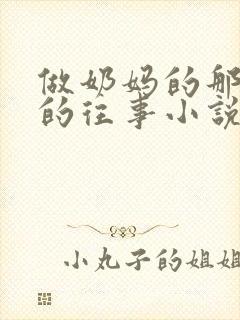 做奶妈的那
的往事小說
小丸子的姐姐